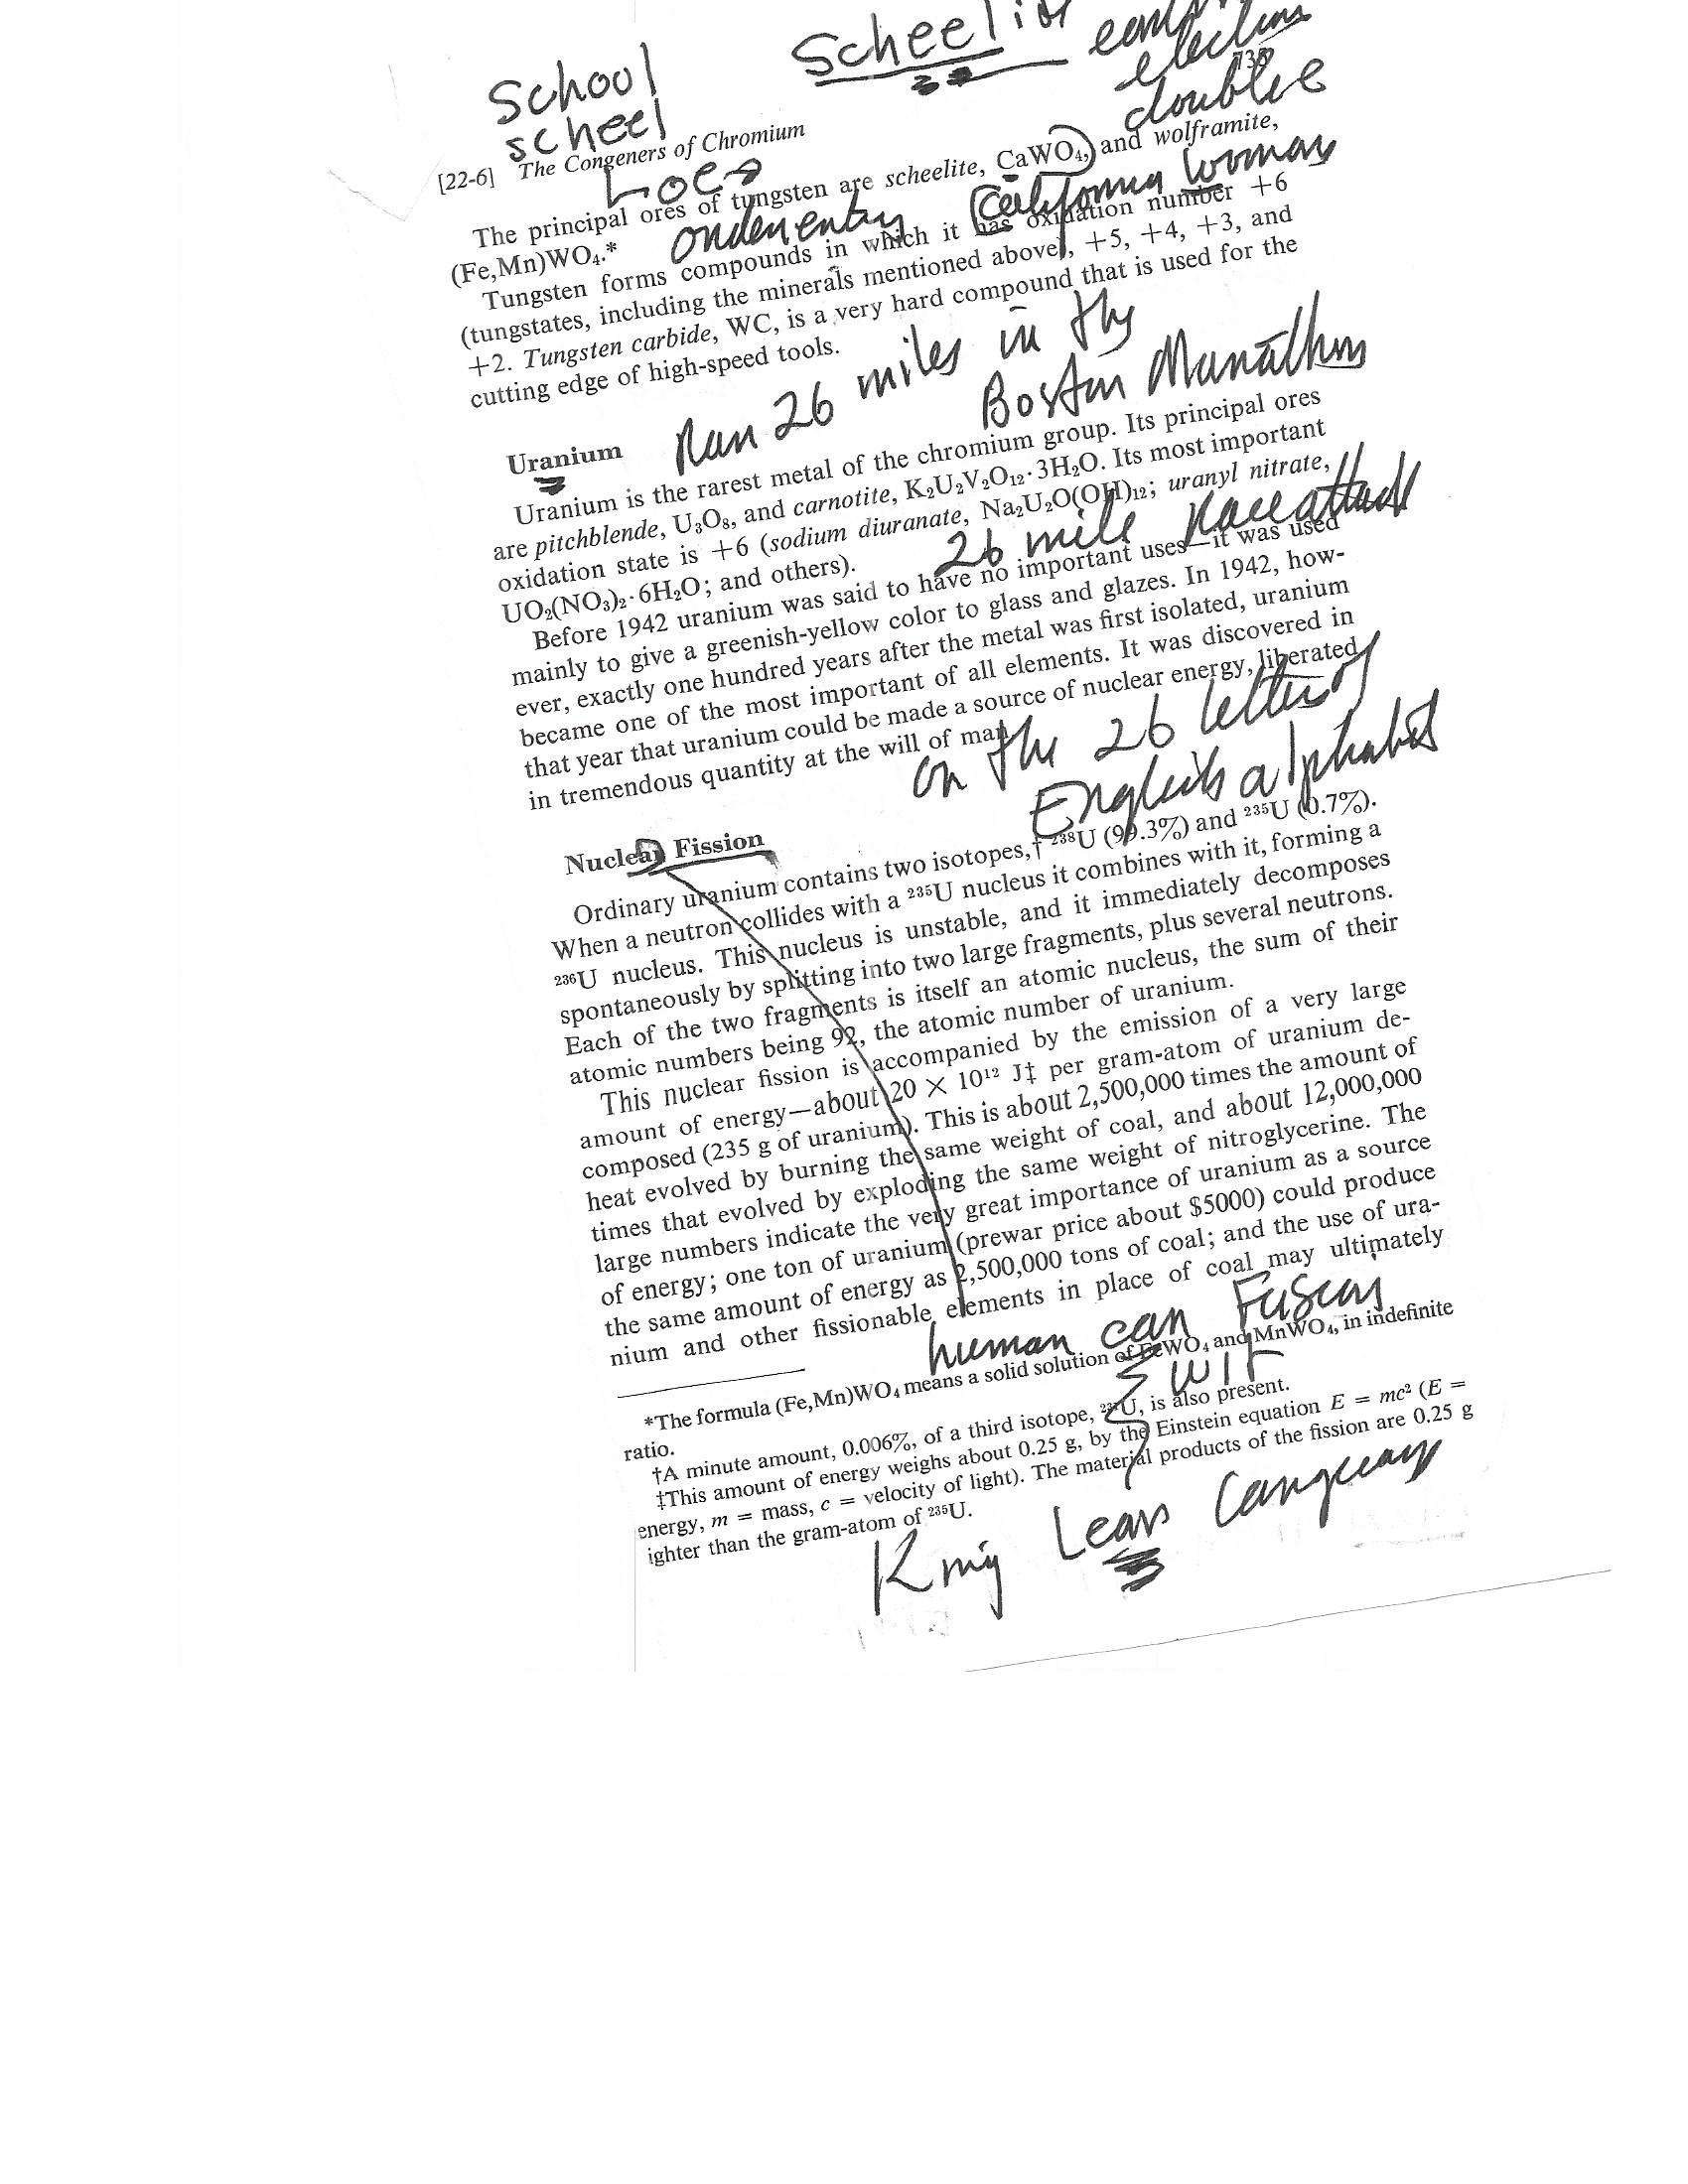 School
scheel
Scheelite
electrons
double
[22-6] The Congeners of Chromium
735
The principal ores of tungsten are scheelite, CaWO₄, and wolframite,
California Woman
(Fe,Mn)WO₄.*
Tungsten forms compounds in which it has oxidation number +6
(tungstates, including the minerals mentioned above), +5, +4, +3, and
+2. Tungsten carbide, WC, is a very hard compound that is used for the
cutting edge of high-speed tools.
Ran 26 miles in the
Boston Marathon
Uranium
Uranium is the rarest metal of the chromium group. Its principal ores
are pitchblende, U₃O₈, and carnotite, K₂U₂V₂O₁₂·3H₂O. Its most important
oxidation state is +6 (sodium diuranate, Na₂U₂O(OH)₁₂; uranyl nitrate,
UO₂(NO₃)₂·6H₂O; and others).
26 mile Race attack
Before 1942 uranium was said to have no important uses—it was used
mainly to give a greenish-yellow color to glass and glazes. In 1942, how-
ever, exactly one hundred years after the metal was first isolated, uranium
became one of the most important of all elements. It was discovered in
that year that uranium could be made a source of nuclear energy, liberated
in tremendous quantity at the will of man.
on the 26 letter of
English alphabet
Nuclear Fission
Ordinary uranium contains two isotopes,† ²³⁸U (99.3%) and ²³⁵U (0.7%).
When a neutron collides with a ²³⁵U nucleus it combines with it, forming a
²³⁶U nucleus. This nucleus is unstable, and it immediately decomposes
spontaneously by splitting into two large fragments, plus several neutrons.
Each of the two fragments is itself an atomic nucleus, the sum of their
atomic numbers being 92, the atomic number of uranium.
This nuclear fission is accompanied by the emission of a very large
amount of energy—about 20 × 10¹² J‡ per gram-atom of uranium de-
composed (235 g of uranium). This is about 2,500,000 times the amount of
heat evolved by burning the same weight of coal, and about 12,000,000
times that evolved by exploding the same weight of nitroglycerine. The
large numbers indicate the very great importance of uranium as a source
of energy; one ton of uranium (prewar price about $5000) could produce
the same amount of energy as 2,500,000 tons of coal; and the use of ura-
nium and other fissionable elements in place of coal may ultimately
human can
*The formula (Fe,Mn)WO₄ means a solid solution of FeWO₄ and MnWO₄, in indefinite
ratio.
†A minute amount, 0.006%, of a third isotope, ²³⁴U, is also present.
‡This amount of energy weighs about 0.25 g, by the Einstein equation E = mc² (E =
energy, m = mass, c = velocity of light). The material products of the fission are 0.25 g
ighter than the gram-atom of ²³⁵U.
King Lear